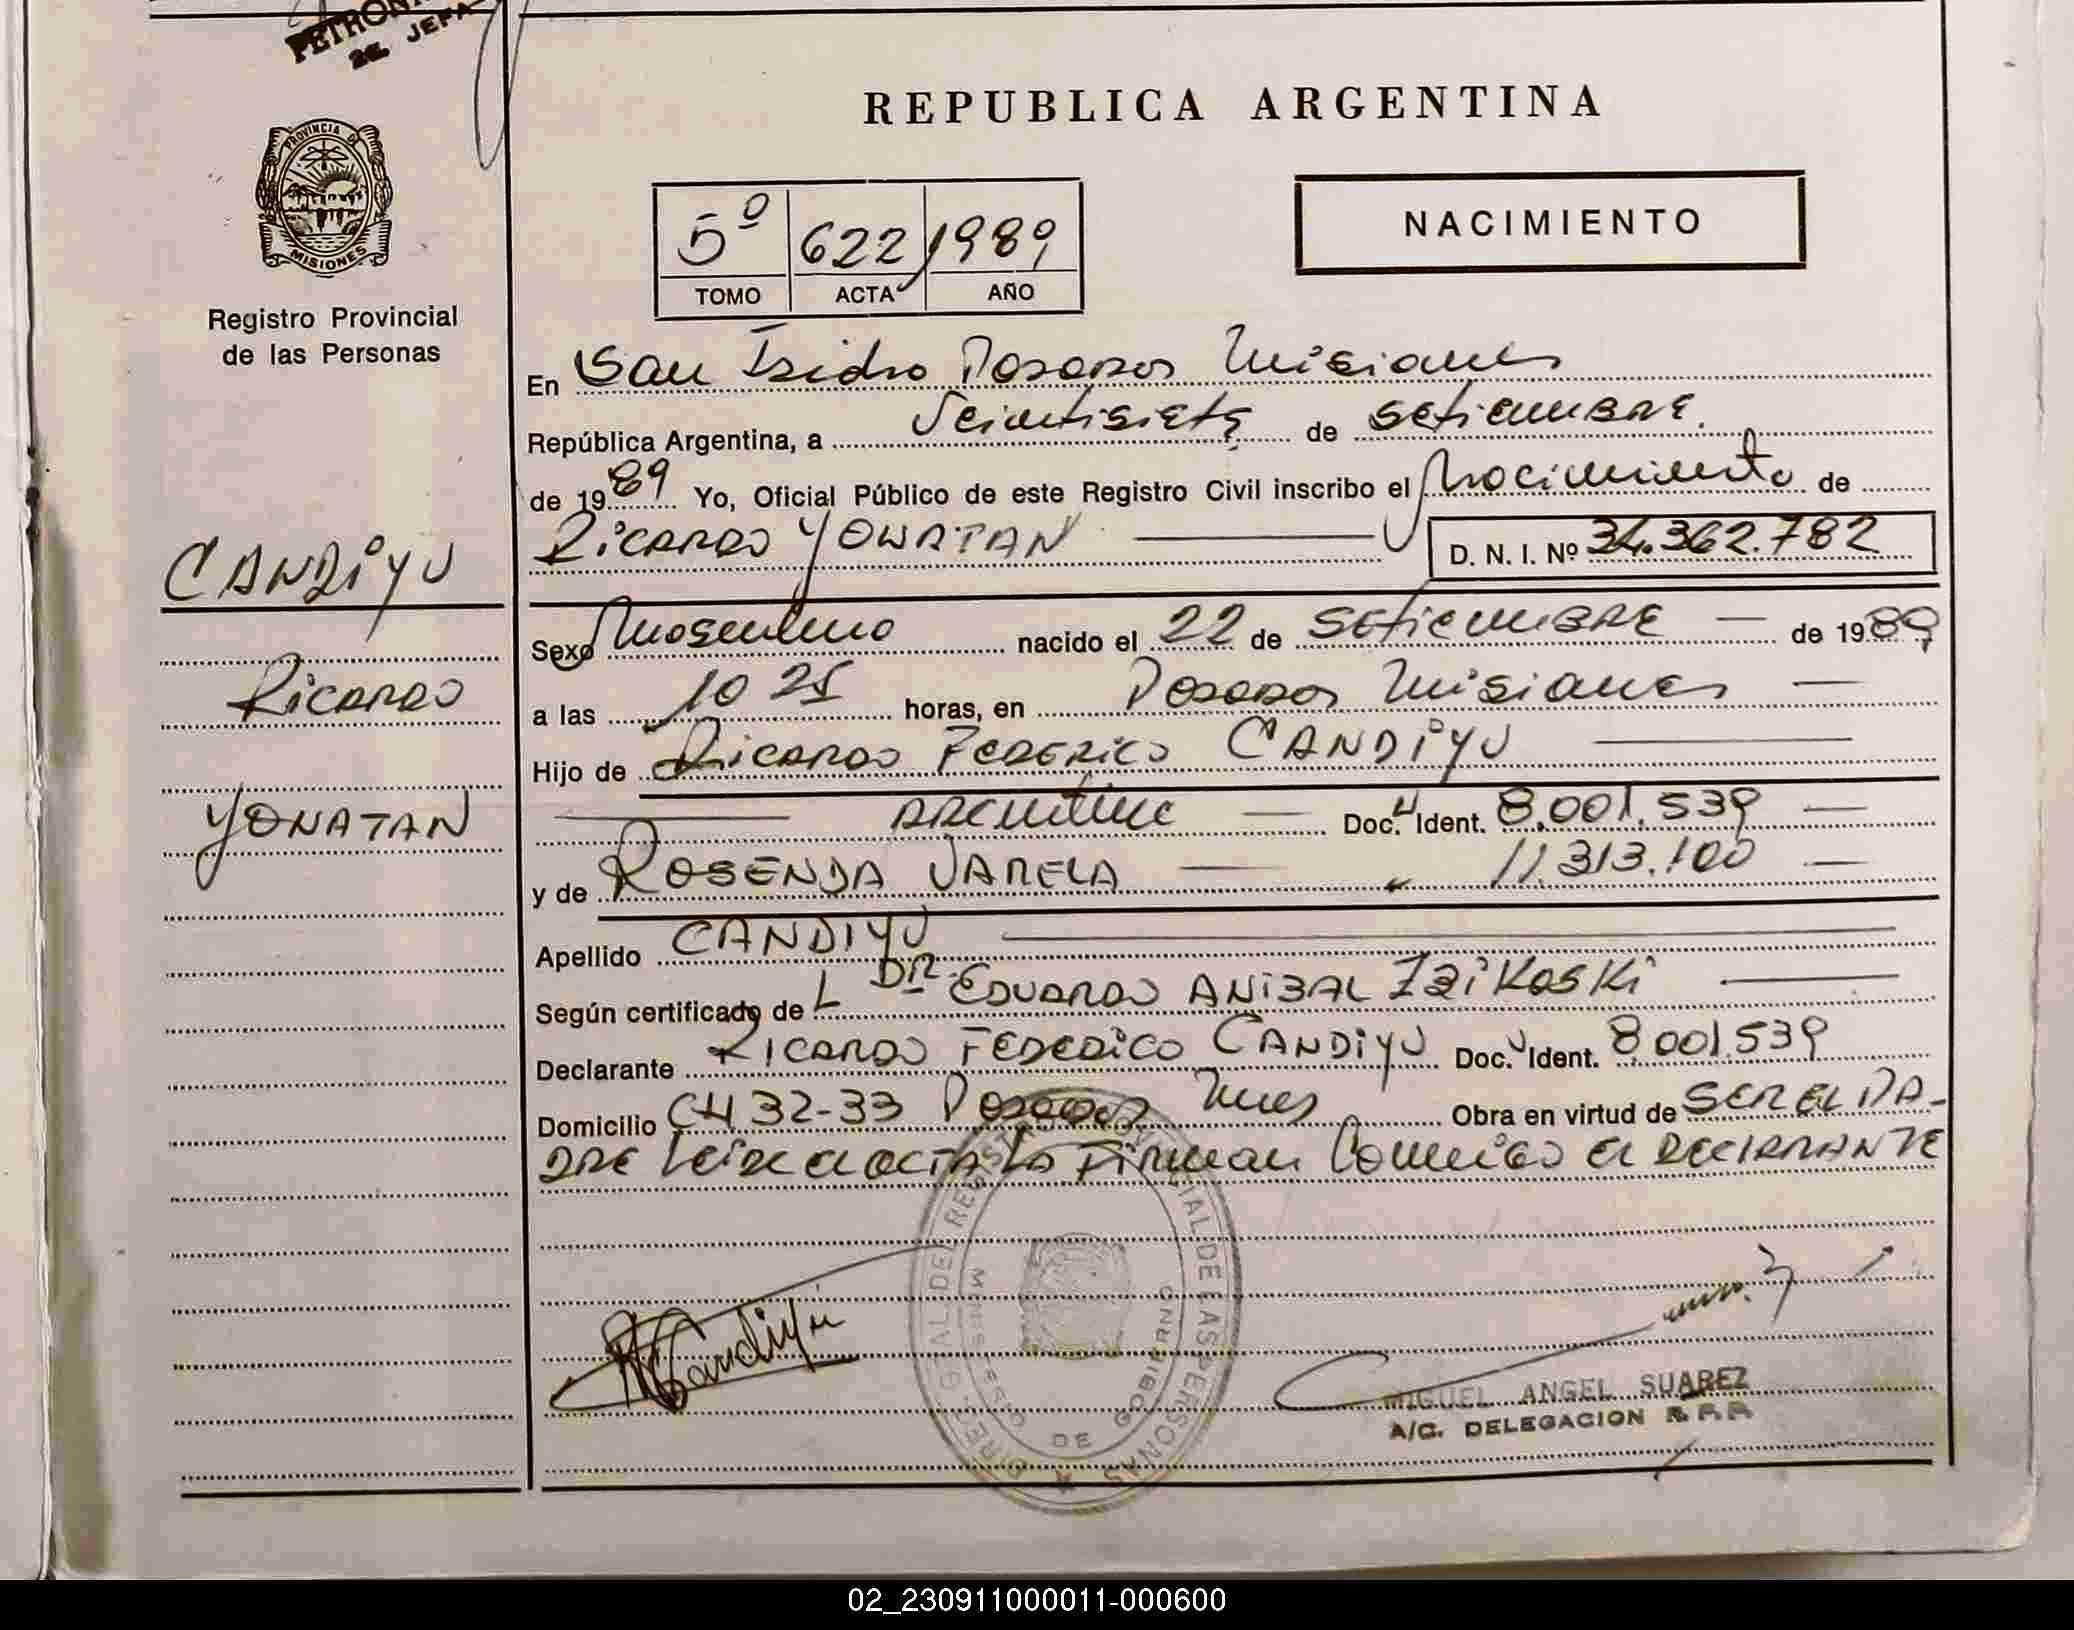 2a. JEFA
PROVINCIA DE
MISIONES
Registro Provincial
de las Personas
CANDIYU
Ricardo
YONATAN
REPUBLICA ARGENTINA
5º 622 1989
TOMO ACTA AÑO
NACIMIENTO
En San Isidro Posadas Misiones
República Argentina, a Veintisiete de setiembre
de 1989 Yo, Oficial Público de este Registro Civil inscribo el Nacimiento de
Ricardo YONATAN D. N. I. Nº 34.362.782
Sexo Masculino nacido el 22 de setiembre de 1989
a las 10 25 horas, en Posadas Misiones
Hijo de Ricardo Federico CANDIYU
argentino Doc. Ident. 8.001.539
y de ROSENDA VARELA 11.313.100
Apellido CANDIYU
Según certificado de L DR. EDUARDO ANIBAL
Declarante Ricardo FEDERICO CANDIYU Doc. Ident. 8001.539
Domicilio CH 32-33 Posadas Mnes Obra en virtud de SER EL PA-
DRE Leida el acta la Firman Conmigo el DECLARANTE
Candiyú
DIRECC. GRAL DEL REGISTRO PROVINCIAL DE LAS PERSONAS
MINISTERIO DE GOBIERNO
MIGUEL ANGEL SUAREZ
A/C. DELEGACION R.P.P.
02_230911000011-000600